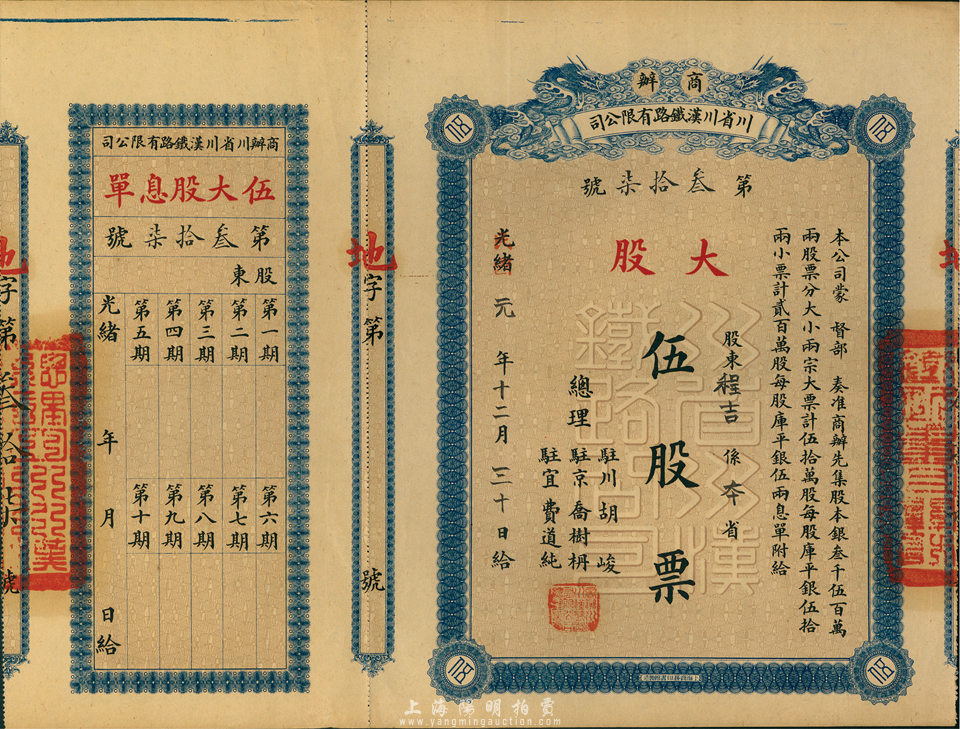 商辦
川省川漢鐵路有限公司
第叁拾柒號
大股
本公司蒙 督部 奏准商辦先集股本銀叁千伍百萬
兩股票分大小兩宗大票計伍拾萬股每股庫平銀伍拾
兩小票計貳百萬股每股庫平銀伍兩息單附給
股東程吉 係 本省
伍股票
總理
駐川胡 峻
駐京喬樹枏
駐宜費道純
光緒 元 年十二月 三十日給
地字第 號
商辦川省川漢鐵路有限公司
伍大股息單
第叁拾柒號
股東
第一期
第二期
第三期
第四期
第五期
第六期
第七期
第八期
第九期
第十期
光緒 年 月 日給
地字第 叁拾柒號
上海陽明拍賣
www.yangmingauction.com